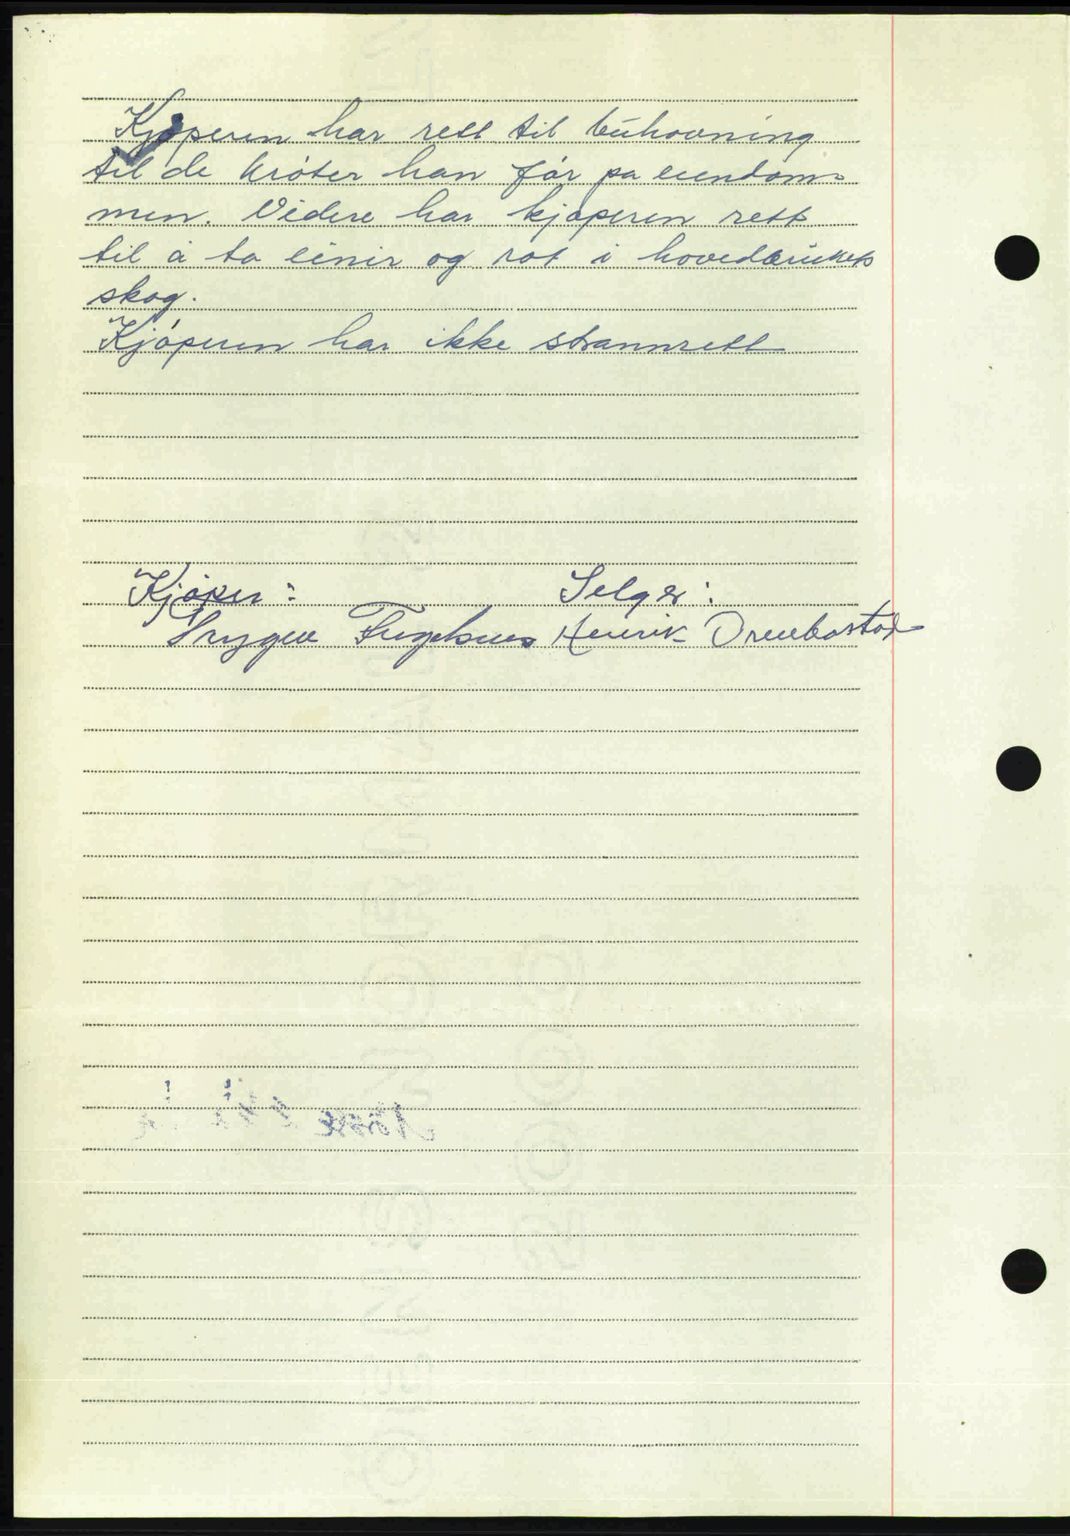 Kjøperen har rett til buhavning
til de krøter han før på eiendom-
men. Videre har kjøperen rett
til å ta einir og rot i hovedbrukets
skog.
Kjøperen har ikke strannrett
Kjøper: Selger:
Trygve Fugelsnes Henrik Drenbostad